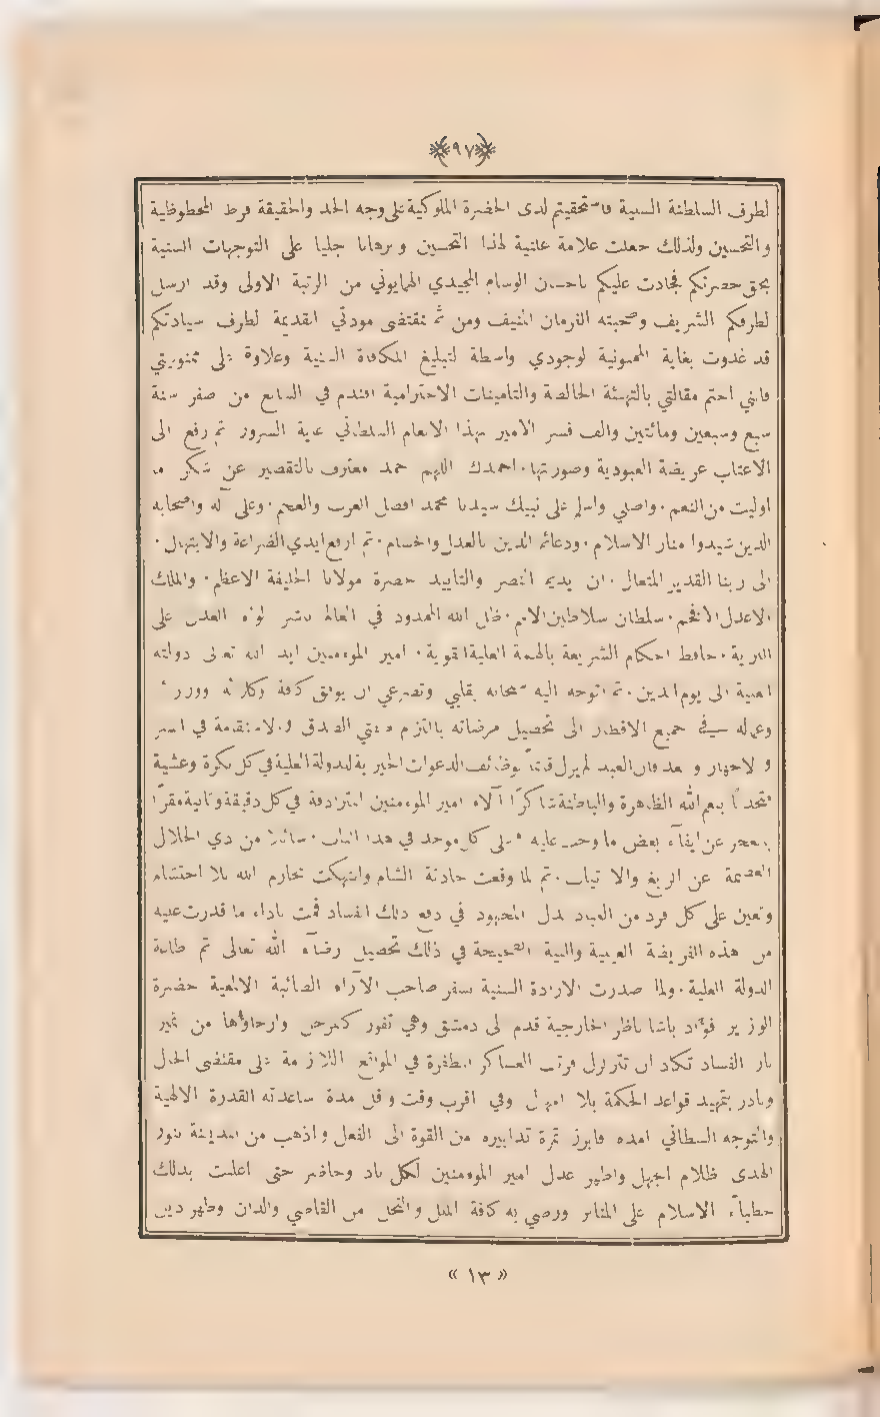 ﴿٩٧﴾
لطرف السلطنة السنية فاستحقيتم لدى الحضرة الملوكية على وجه الجد والحقيقة فرط المحظوظية
والتحسين ولذلك جعلت علامة علنية لهذا التحسين وبرهانا جليا على التوجهات السنية
بحق حضرتكم فجادت عليكم باحسان الوسام المجيدي الهمايوني من الرتبة الاولى وقد ارسل
لطرفكم الشريف وصحبته الفرمان المنيف ومن ثم بمقتضى مودتي القديمة لطرف سيادتكم
قد غدوت بغاية الممنونية لوجودي واسطة لتبليغ المكافاة السنية وعلاوة على ممنونيتي
فانني اختم مقالتي بالتهنئة الخالصة والتامينات الاحترامية افندم في السابع من صفر سنة
سبع وسبعين ومائتين والف فسر الامير بهذا الانعام السلطاني غاية السرور ثم رفع الى
الاعتاب عريضة العبودية وصورتها. احمدك اللهم حمد معترف بالتقصير عن شكر ما
اوليت من النعم. واصلي واسلم على نبيك سيدنا محمد افضل العرب والعجم. وعلى آله واصحابه
الذين شيدوا منار الاسلام. ودعائم الدين بالعدل والحسام. ثم ارفع ايدي الضراعة والابتهال.
الى ربنا القدير المتعال. ان يديم النصر والتاييد حضرة مولانا الخليفة الاعظم. والملك
الاعدل الافخم. سلطان سلاطين الامم. ظل الله الممدود في العالم ناشر لواء العدل على
البرية. حافظ احكام الشريعة بالهمة العلية القوية. امير المومنين ايد الله تعالى دولته
العلية الى يوم الدين. ثم اتوجه اليه سبحانه بقلبي وتضرعي ان يوفق كافة وكلائه ووزرائه
وعماله في جميع الاقطار الى تحصيل مرضاته بالتزام ديني الصدق والاستقامة في السر
والاجهار وبعد فان العبد لم يزل قائما بوظائف الدعوات الخيرية للدولة العلية في كل بكرة وعشية
متحدثا بنعم الله الظاهرة والباطنة شاكرًا آلاء امير المومنين المترادفة في كل دقيقة وثانية مقرًا
بالعجز عن ايفاء بعض ما وجب عليه وعلى كل موحد في هذا الباب. سائلا من ذي الجلال
العصمة عن الزيغ والارتياب. ثم لما وقعت حادثة الشام وانتهكت محارم الله بلا احتشام
وتعين على كل فرد من العباد بذل المجهود في دفع ذلك الفساد قمت باداء ما قدرت عليه
من هذه الفريضة العينية والنية الصحيحة في ذلك تحصيل رضاء الله تعالى ثم طاعة
الدولة العلية. ولما صدرت الارادة السنية بسفر صاحب الآراء الصائبة الالمعية حضرة
الوزير فؤاد باشا ناظر الخارجية قدم الى دمشق وهي تفور كالمرجل وارجاؤها من تأثير
نار الفساد تكاد ان تتزلزل فرتب العساكر المظفرة في المواقع اللازمة على مقتضى الحال
وبادر بتمهيد قواعد الحكمة بلا امهال وفي اقرب وقت واقل مدة ساعدته القدرة الالهية
والتوجه السلطاني امده فابرز ثمرة تدابيره من القوة الى الفعل واذهب من المدينة بنور
الهدى ظلام الجهل واظهر عدل امير المومنين لكل باد وحاضر حتى اعلنت بذلك
خطباء الاسلام على المنابر ورضي به كافة الملل والنحل من القاصي والدان وظهر دين
«١٣»